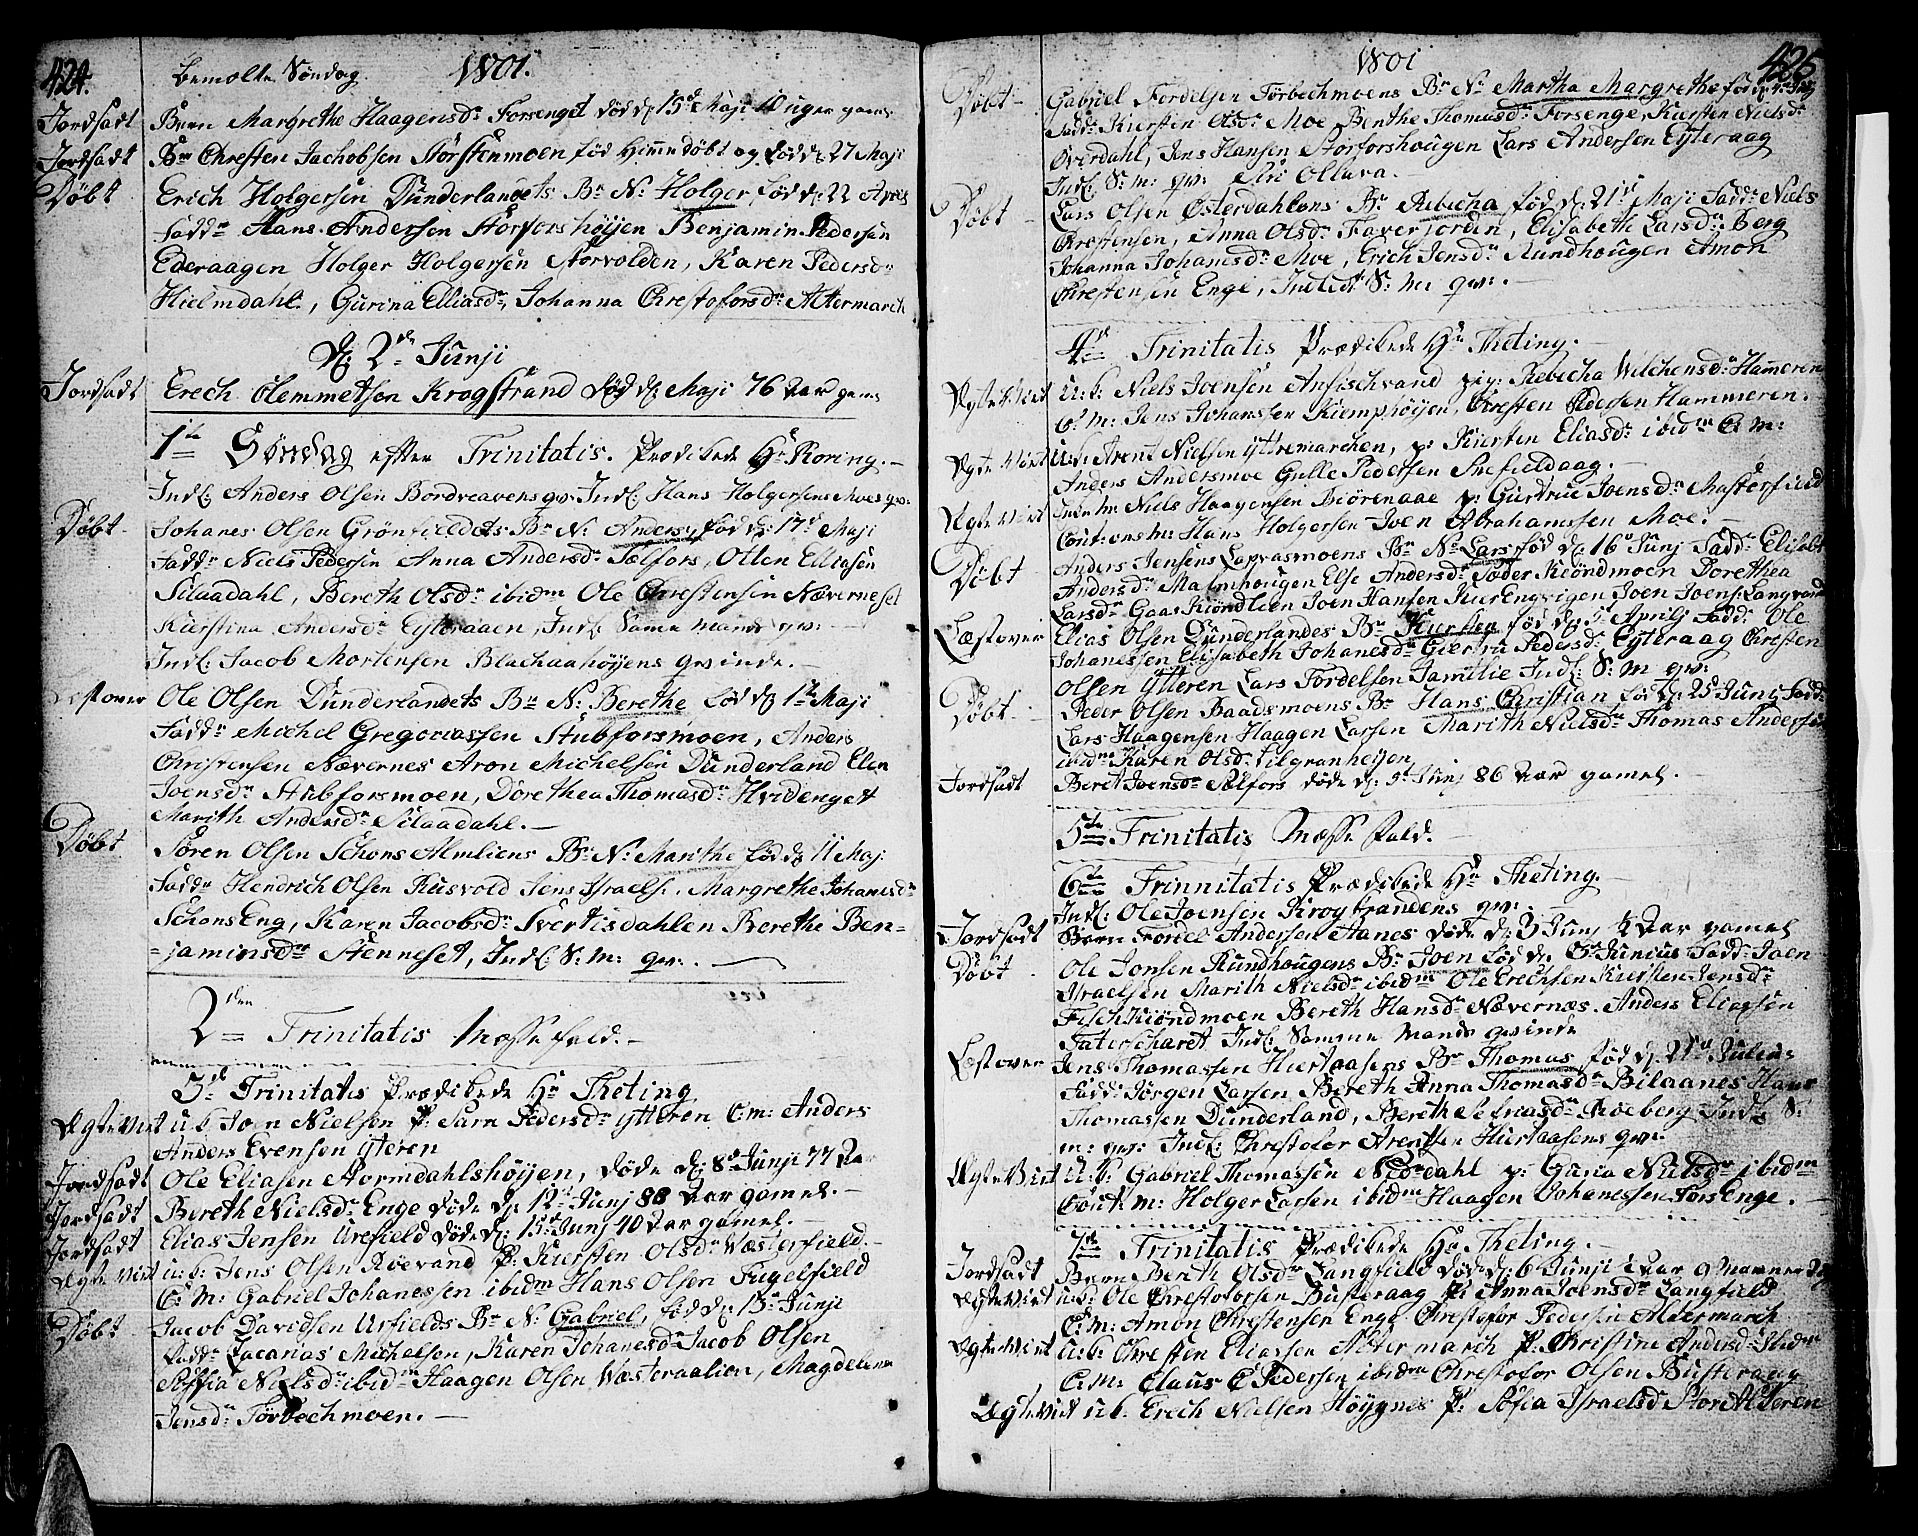 424.
bemolte Søndag 1801.
Jordsadt Barn Margrethe Haagensd: Forsenget død d: 15d Maji 10 uger gaml
Jordsadt Bn Chresten Jachobsen Storstenmoen fød Himmedøbt og død d: 27 Maji
Døbt Erich Holgersen Dunderlandets Bn N: Holger fød d: 22 April
Fadd: Hans Andersen Storforshøijen Benjamin Pedersen
Ederaagen Holger Holgersen Storvolden, Karen Pedersd:
Hielmdahl, Gurina Elliasd:, Johanna Chrestofersd: Altermarch
d: 2de Junji
Jordsadt Erech Clemmetsen Krogstrand død d: Maji 76 Aar gaml
1te Søndag efter Trinitatis. Prædikede Hr Roring.
Indl: Anders Olsen Bordveavens qv: Indl: Hans Holgersens Moes qv:
Døbt Johanes Olsen Grønfieldets Bn N: Anders, fød d: 17d Maji
Fadd: Niels Pedersen Anna Andersd: Selfors, Otten Elliasen
Silaadahl, Bereth Olsd: ibidm Ole Chrestensen Næverneset
Kierstina Andersd: Eyteraaen, Indl: Samme Mands qv:
Indl: Jacob Mortensen Blachaahøijens qvinde.
Læst over Ole Olsen Dunderlandets Bn N: Berethe fød d: 1te Maji
Fadd: Michel Gregoriassen Stubforsmoen, Anders
Christensen Nævernes Aron Michelsen Dunderland Elen
Joensd: Stubforsmoen, Dorethea Thomasd: Hvidenget
Marith Andersd: Silaadahl.
Døbt Søren Olsen Schons Almliens Bn N: Marithe fød d: 11 Maj:
Fadd: Hendrich Olsen Rusvold Jens Israels: Margrethe Johanesd:
Schons Eng, Karen Jacobsd: Svertisdahlen Berethe Ben=
=jaminsd: Stenneset, Indl: S: m: qv:.
2den Trinitatis Messefald.
3d Trinitatis Prædikede Hr Theting
Ægte Viet u: b Joen Nielsen P: Sara Pedersd: ytteren C: m: Anders
Anders Evensen yteren
Jordsadt Ole Eliasen Stormdahlshøijen, døde d: 8d Junji 77 Aar
Jordsadt Bereth Nielsd: Enge døde d: 12te Junj 88 Aar gamel.
Jordsadt Elias Jensen Urefield døde d: 15d Junj 40 Aar gamel.
Ægte Viet u: b: Jens Olsen Røevand P: Kiersten Olsd: Væsterfield.
C: M: Gabriel Johanessen ibidm Hans Olsen Fugelfield
Døbt Jacob Davidsen Urfields Bn N: Gabriel, fød d: 13 Junji
Fadd: Zacarias Michaelsen, Karen Johanesd: Jacob Olsen
Siffia Nielsd: ibidm Haagen Olsen Væsteraalien, Magdelena
Jensd: Tørbechmoen.
1801 425
Døbt Gabriel Tordelsen Tørbechmoens Bn N: Martha Margrethe fød
Fadd: Kiersten Olsd: Moe Benthe Thomasd: Forsenge, Kiersten Nielsd:
Øverdahl, Jens Hansen Storforshougen Lars Andersen Eyteraag
Indl: S: m: qv: Siri Ollava.
Døbt Lars Olsen Østerdahlens Bn Rebicha fød d: 21de Maji Fadd: Niels
Chrestensen, Anna Olsd: Faverjorden, Elisabeth Larsd: Berg
Johanna Johanesd: Moe, Erich Jensd: Rundhougen Amon
Chrestensen Enge, Indledt S: m: qv:.
4de Trinitatis Prædikede Hr Theting.
Ægte Viet u: b: Niels Joensen Anfischvand pig: Rebicha Wilchensd: Hammeren
C: m: Jens Johanssen Kiemphøijen, Chresten Pedersen Hammeren.
Ægte Viet u: b: Arent Nielsen yttremarchen, p: Kiersten Eliasd: ibidm C: m:
Anders Andersmoe Gulle Pedersen Snefieldaag.
Ægte Viet Niels Haagensen Biørenaae p: Gurtrue Joensd: Masterfield
Cont: ons m: Hans Holgersen Joen Abrahamssen Moe.
Døbt Anders Jensens Lapvasmoens Bn N: Lars fød d: 16d Junj Fadd: Elisabt
Andersd: Malmhougen Else Andersd: Søder Kiøndmoen Dorethea
Larsd: Gaas Kiøndlien Joen Hansen Kierengvigen Joen Joens: Langvand
Læst over Elias Olsen Dunderlandes Bn Kiersten fød d: 5d Aprilj Fadd: Ole
Johanessen Elisabeth Johanesd: Giertru Pedersd: Eyteraag Chresten
Olsen Ytteren Lars Tordelsen Familie Indl: S: m qv:
Døbt Peder Olsen Baadsmoens Bn Hans Christian fød d: 25 Junj Fadd:
Lars Haagensen Haagen Larsen Marith Nielsd: Thomas Andersen
ibidm Karen Olsd:
Jordsadt Beret Joensd: Selfors døde d: Junj 86 Aar gamel.
5te Trinitatis Messe fald.
6te Trinnitatis Prædikede Hr Theting.
Indl: Ole Joensen Krogstrandens qv:
Jordsadt Barn Tordel Andersen Aanes døde d: 3 Junj Aar gamel
Døbt Ole Jonsen Rundhougens Bn Joen fød d: Junius Fadd: Joen
Israelsen Marith Nielsd: ibidm Ole Erechsen Kiersten Jensd:
Fisch Kiøndmoen Bereth Hansd: Nævernæs. Anders Eliassen
Taterscharet Indl: Samme Mands qvinde
Læst over Jens Thomassen Hiertaasens Bn Thomas fød d: Junius
Fadd: Jørgen Larsen, Bereth Anna Thomasd: Bilaanes Hans
Thomassen Dunderland, Bereth Røeberg Indl: S:
m: qv: Indl: Chrestofer Arentsen Hiertaasens qv:
Ægte Viet u: b: Gabriel Thomassen Neddahl p: Guria Nielsd: ibidm
Cout: m: Holger Larsen ibidm Haagen Johanessen Fors Enge.
7de Trinitatis Prædikede Hr Theting.
Jordsadt Barn Bereth Olsd: Langfield død d: 6 Junji 1 Aar 9 Maaneder
Ægte Viet u: b: Ole Chrestofersen Busteraag P: Anna Joensd: Langfield
C: M: Amon Chrestensen Enge Chrestofer Pedersen Altermarch
Ægte Viet u: b: Chresten Eliassen Altermarch P: Christine Andersd: ibidm
C: M: Claus C Pedersen ibidm Chrestofer Olsen Busteraag
Ægte Viet u: b. Erech Nielsen Høygnes P: Sofia Israelsd Stor Alteren